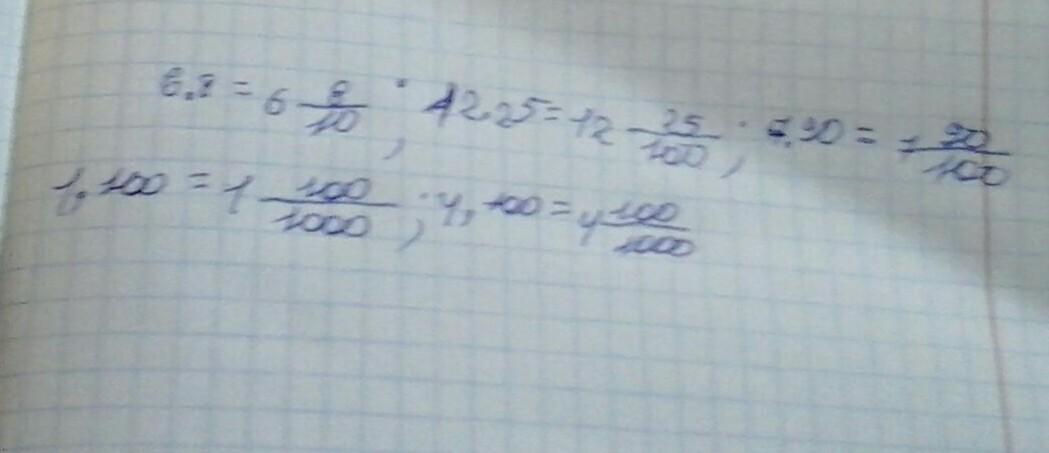 6,8 = 6 8/10 ; 12,25 = 12 25/100 ; 7,90 = 7 90/100
1,100 = 1 100/1000 ; 4,100 = 4 100/1000